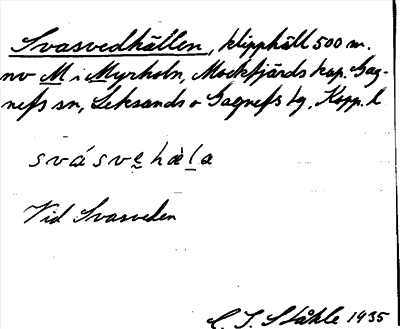 Svasvedhällen, klipphäll 500 m.
nv M i Myrholn, Mockfjärds kap. Gag-
nefs sn, Leksands o Gagnefs tg, Kopp. l
svásvẹhàḷa
Vid Svasveden
C. I. Ståhle 1935